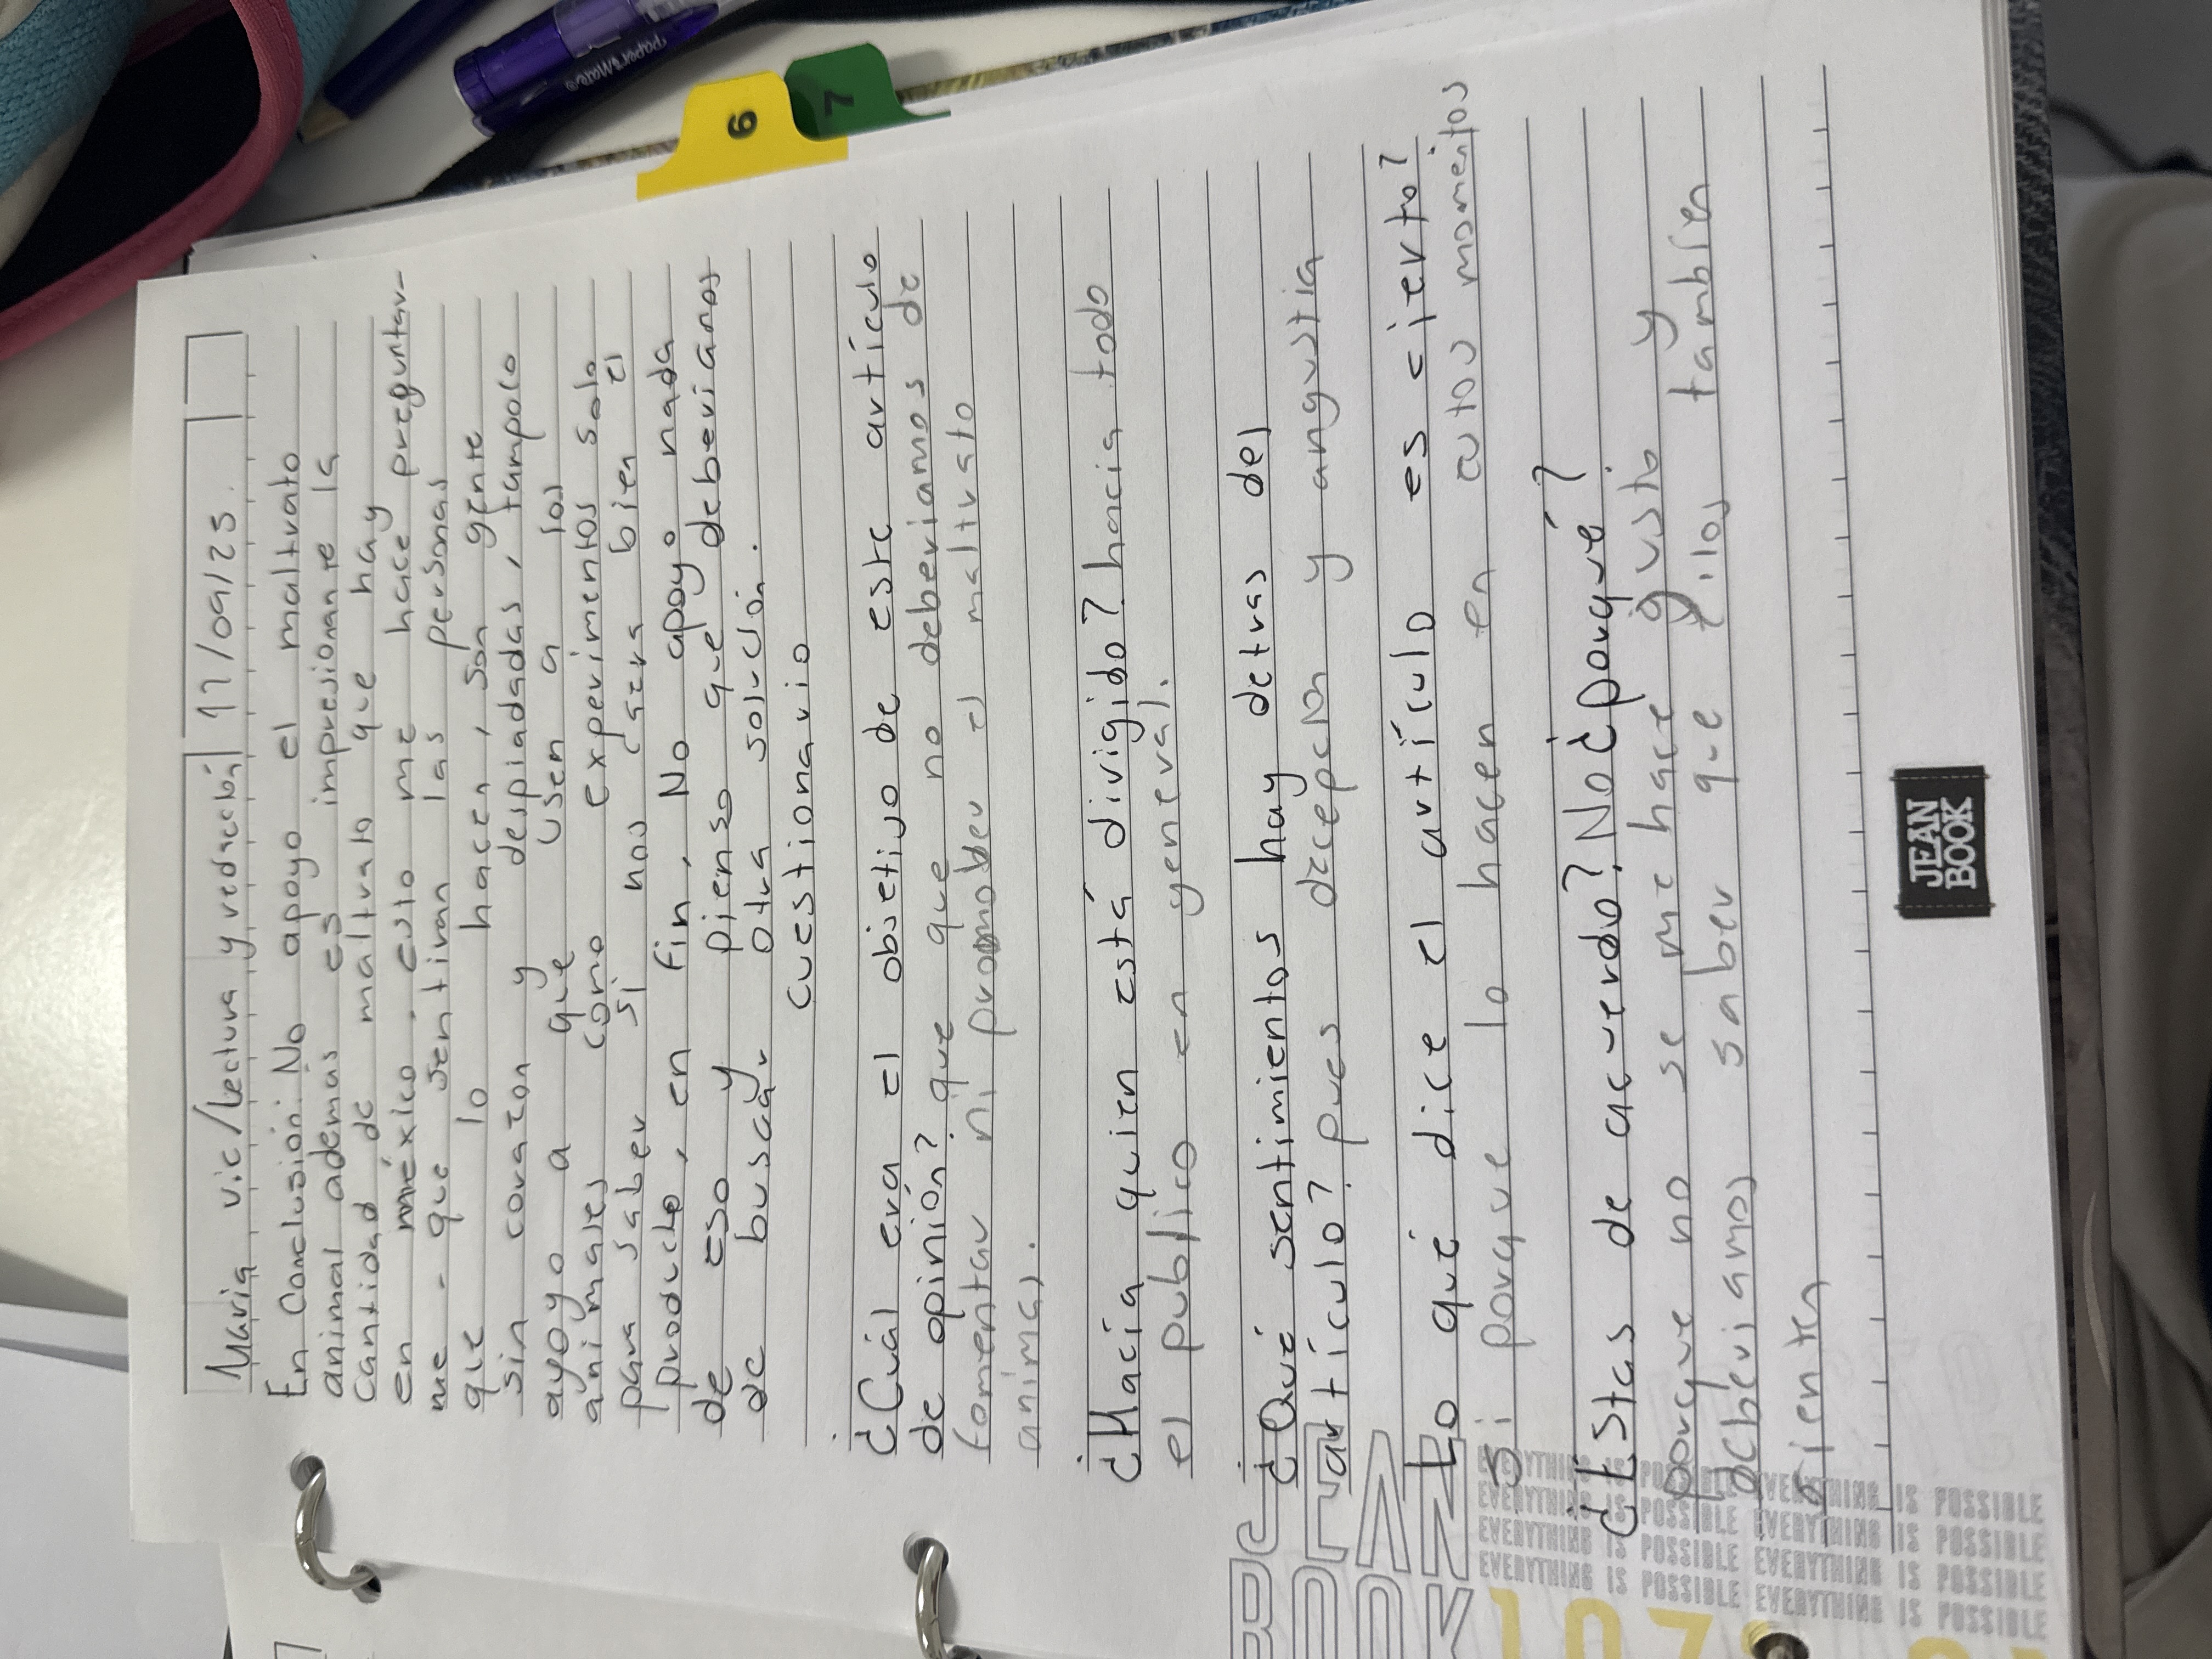 Maria vic/lectura y redacción 17/09/25.
En Conclusión: No apoyo el maltrato
animal además es impresionante la
cantidad de maltrato que hay
en méxico. esto me hace preguntar-
me - que sentiran las personas
que lo hacen, son gente
sin corazon y despiadadas, tampoco
ayoyo a que usen a los
animales como experimentos solo
para saber si nos caera bien el
producto, en fin, No apoyo nada
de eso y pienso que deberiamos
de buscar otra solución.
cuestionario
¿Cuál era el objetivo de este artículo
de opinión? que que no deberiamos de
fomentar ni promober el maltrato
animal.
¿Hacía quien está dirigido? hacia todo
el publico en general.
¿Qué sentimientos hay detras del
artículo? pues decepción y angustia
Lo qué dice el artículo es cierto?
Si porque lo hacen en estos momentos
¿Estas de acuerdo? No ¿porqué?
porque no se me hace gusto y
deberiamos saber que ellos tambien
sienten
PaperMate
6
7
JEAN
BOOK
EVERYTHING IS POSSIBLE EVERYTHING IS POSSIBLE
EVERYTHING IS POSSIBLE EVERYTHING IS POSSIBLE
EVERYTHING IS POSSIBLE EVERYTHING IS POSSIBLE
EVERYTHING IS POSSIBLE EVERYTHING IS POSSIBLE